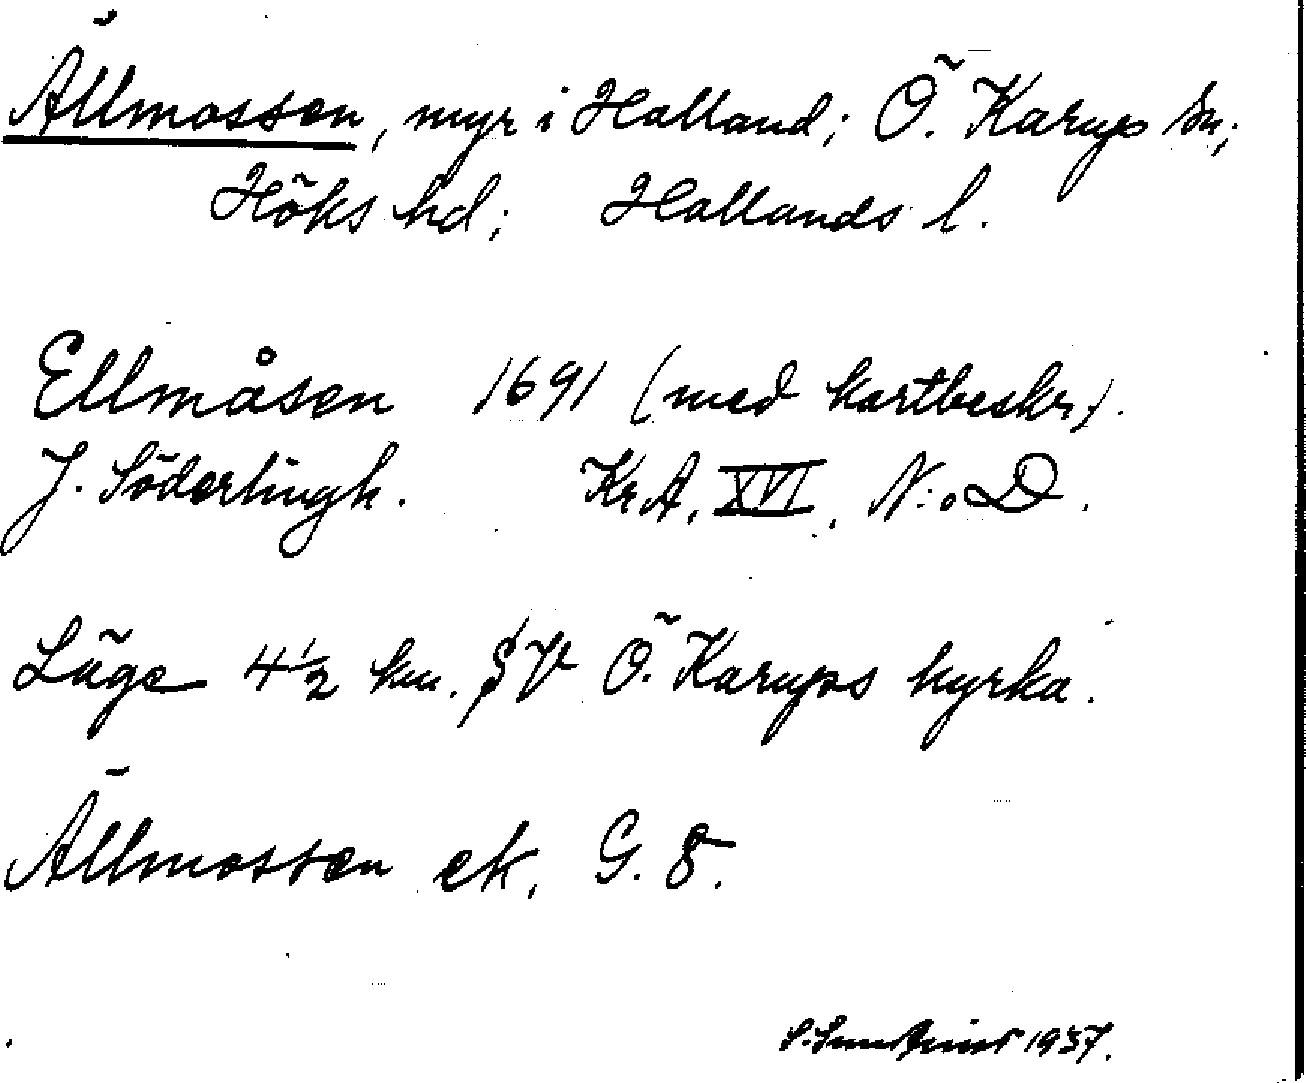 Ällmossen, myr i Halland; Ö. Karups sn;
Höks hd; Hallands l.
Ellmåsen 1691 (med kartbeskr).
J. Söderlingh. Kr.A. XVI. N:o D.
Läge 4½ km. SV Ö. Karups kyrka.
Ällmossen ek. G. 8.
1937.